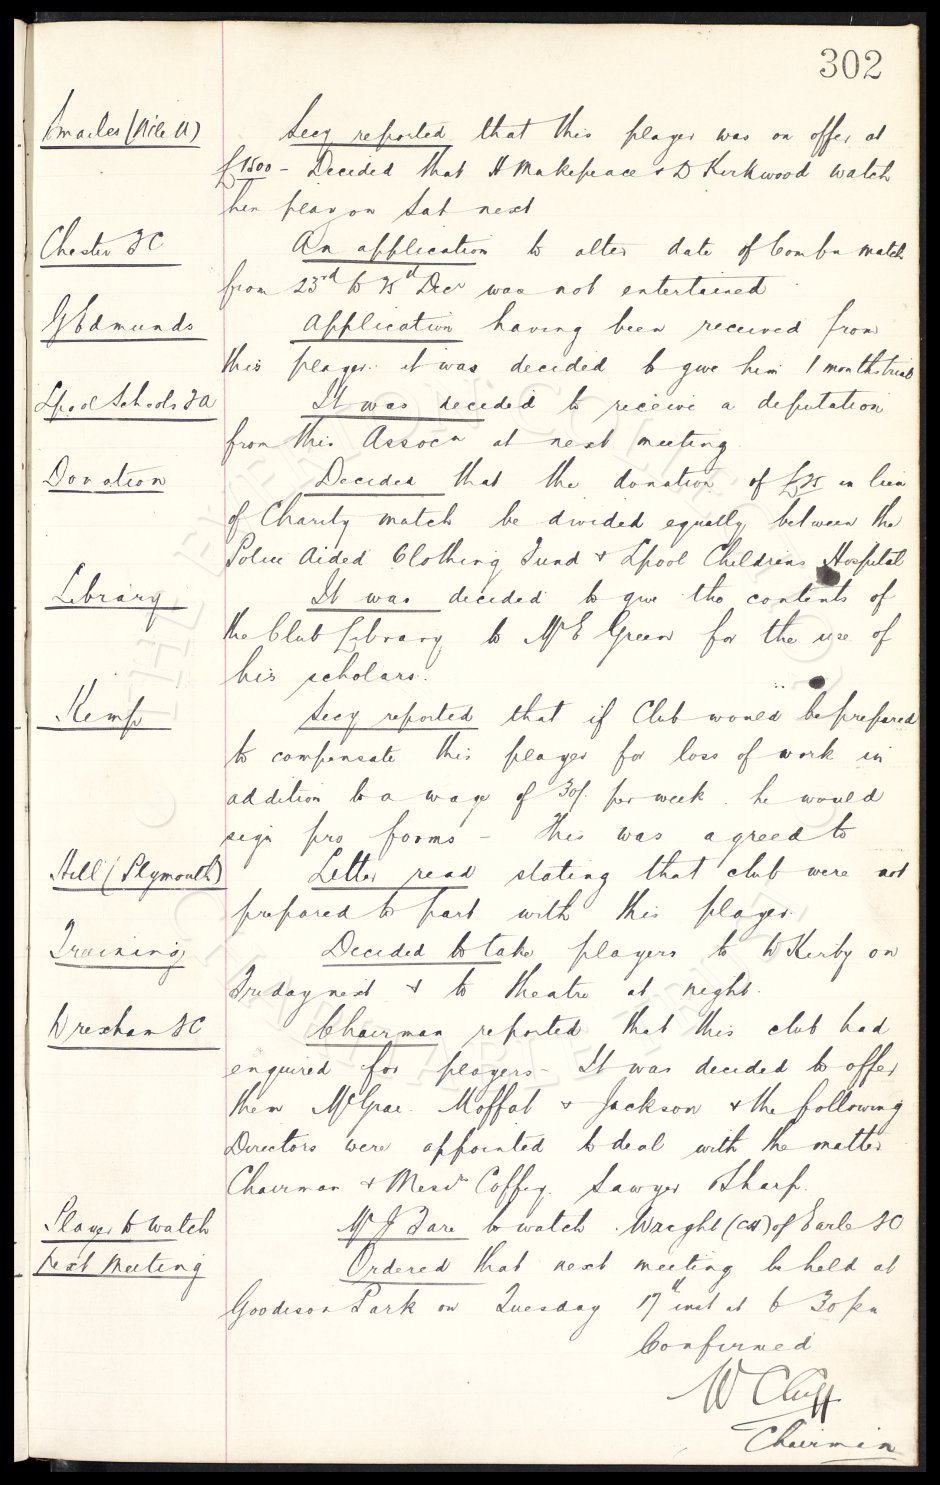 302
Smailes (Nile U) Secy reported that this player was on offer at
£1500 - Decided that H Makepeace & D Kirkwood watch
him play on Sat next
Chester F C An application to alter date of Combn match
from 23rd to 25th Decr was not entertained
G Edmunds Application having been received from
this player it was decided to give him 1 months trial
Lpool Schools F A It was decided to receive a deputation
from this Assocn at next meeting
Donation Decided that the donation of £25 in lieu
of Charity match be divided equally between the
Police Aided Clothing Fund & Lpool Childrens Hospital
Library It was decided to give the contents of
the Club Library to Mr E Green for the use of
his scholars.
Kemp Secy reported that if Club would be prepared
to compensate this player for loss of work in
addition to a wage of 30/- per week he would
sign pro forms - This was agreed to
Hill (Plymouth) Letter read stating that club were not
prepared to part with this player.
Training Decided to take players to W Kirby on
Friday next & to theatre at night.
Wrexham F C Chairman reported that this club had
enquired for players - It was decided to offer
them McGrae. Moffat & Jackson & the following
Directors were appointed to deal with the matter
Chairman & Messrs Coffey. Sawyer Sharp.
Player to watch Mr J Fare to watch Wright (CH) of Earle F C
Next Meeting Ordered that next meeting be held at
Goodison Park on Tuesday 17th inst at 6 30 pm
Confirmed
W C Cuff
Chairman
THE EVERTON COLLECTION
CHARITABLE TRUST